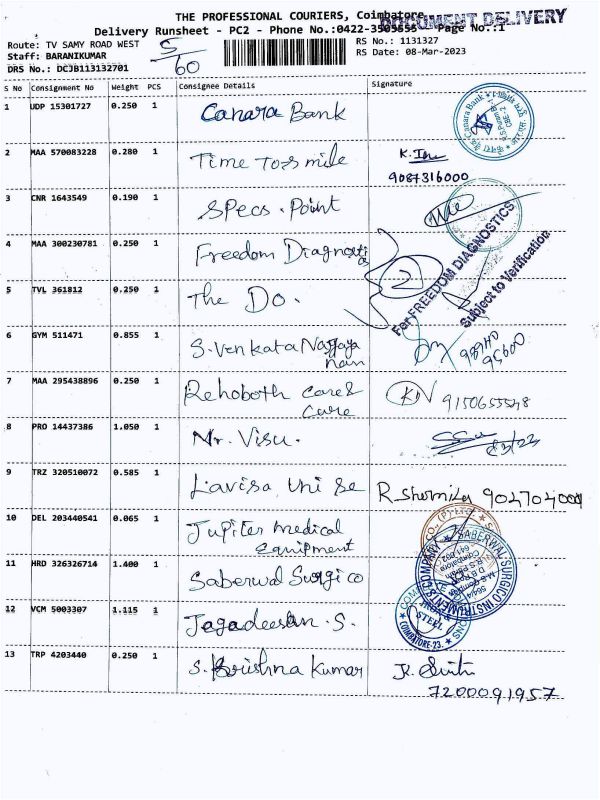 THE PROFESSIONAL COURIERS, Coimbatore
DOCUMENT DELIVERY
Delivery Runsheet - PC2 - Phone No.:0422-3509555 Page No.:1
Route: TV SAMY ROAD WEST
5/60
RS No.: 1131327
Staff: BARANIKUMAR
RS Date: 08-Mar-2023
DRS No.: DCJB113132701
S No Consignment No Weight PCS Consignee Details Signature
1 UDP 15301727 0.250 1 Canara Bank
2 MAA 570083228 0.280 1 Time Tools mile
9087316000
3 CNR 1643549 0.190 1 Specs. Point
4 MAA 300230781 0.250 1 Freedom Diagnostic
2
For FREEDOM DIAGNOSTICS
Subject to Verification
5 TVL 361812 0.250 1 The Do.
6 GYM 511471 0.855 1 S. Venkata Narayanan
7 MAA 295438896 0.250 1 Rehoboth Care &
Care
KN 9150655548
8 PRO 14437386 1.050 1 Mr. Visu.
9 TRZ 320510072 0.585 1 Lavisa Uni Se
R. Sharmila
10 DEL 203440541 0.065 1 Jupiter Medical
Equipment
11 HRD 326326714 1.400 1 Saberwal Surgico
12 VCM 5003307 1.115 1 Jagadeesan. S.
COIMBATORE-23.
13 TRP 4203440 0.250 1 S. Krishna Kumar
7200091957